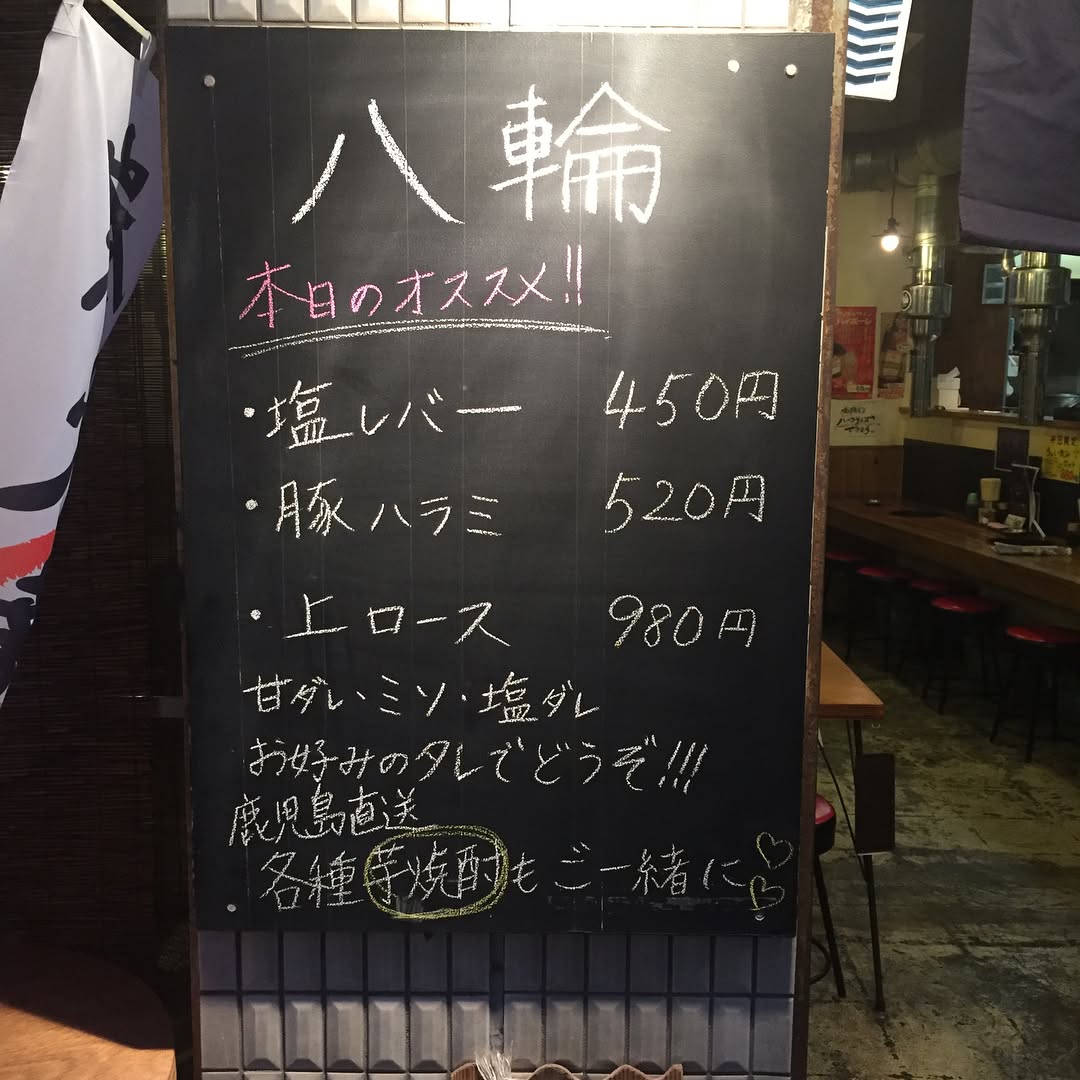 八輪
本日のオススメ!!
・塩レバー 450円
・豚ハラミ 520円
・上ロース 980円
甘ダレ・ミソ・塩ダレ
お好みのタレでどうぞ!!!
鹿児島直送
各種芋焼酎もご一緒に♡♡